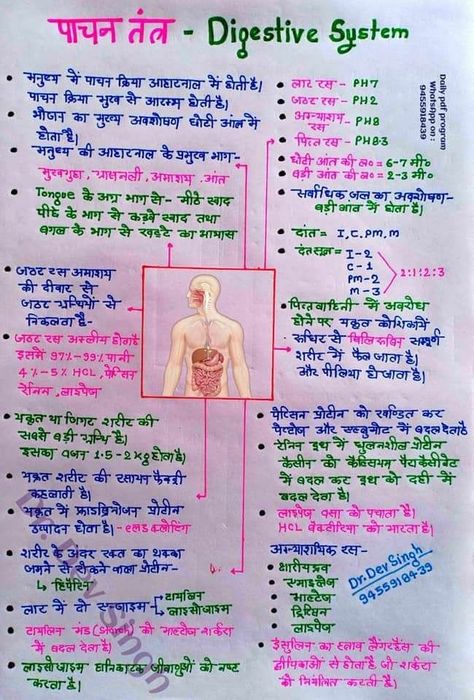 पाचन तंत्र - Digestive System
मनुष्य में पाचन क्रिया आहारनाल में होती है।
पाचन क्रिया मुख से आरम्भ होती है।
भोजन का मुख्य अवशोषण छोटी आंत में
होता है।
मनुष्य की आहारनाल के प्रमुख भाग-
मुखगुहा, ग्रासनली, आमाशय, आंत
Tongue के अग्र भाग से- मीठे स्वाद
पीछे के भाग से कड़वे स्वाद तथा
बगल के भाग से खट्टे का आभास
जठर रस आमाशय
की दीवार से
जठर ग्रन्थियों से
निकलता है-
जठर रस अम्लीय होता है
इसमें 97%-99% पानी
4%-5% HCL, पेप्सिन
रेनिन, लाइपेज
यकृत या जिगर शरीर की
सबसे बड़ी ग्रन्थि है।
इसका वजन 1.5-2 kg होता है।
यकृत शरीर की रसायन फैक्ट्री
कहलाती है।
यकृत में फाइब्रिनोजन प्रोटीन
उत्पादन होता है-
शरीर के अंदर रक्त का थक्का
जमने से रोकने वाला प्रोटीन-
↳ हिपैरिन
लार में दो एन्जाइम-
टायलिन
लाइसोजाइम
टायलिन मंड (स्टार्च) को माल्टोज शर्करा
में बदल देता है।
लाइसोजाइम हानिकारक जीवाणुओं को नष्ट
करता है।
लार रस - PH7
जठर रस - PH2
अग्न्याशय रस - PH8
पित्त रस - PH8.3
छोटी आंत की ल० = 6-7 मी०
बड़ी आंत की ल० = 2-3 मी०
सर्वाधिक जल का अवशोषण-
बड़ी आंत में होता है।
दांत = I, C, PM, M
दंतसूत्र = I-2
C-1
PM-2
M-3
2:1:2:3
पित्तवाहिनी में अवरोध
होने पर यकृत कोशिकायें
रूधिर से बिलिरूबिन सम्पूर्ण
शरीर में फैल जाता है।
और पीलिया हो जाता है।
पेप्सिन प्रोटीन को खण्डित कर
पेप्टोन और में बदल देता है
रेनिन दूध में घुलनशील प्रोटीन
कैसीन को कैल्सियम पैराकैसीनेट
में बदल कर दूध को दही में
बदल देता है।
लाइपेज वसा को पचाता है।
HCL बैक्टीरिया को मारता है।
अग्न्याशयिक रस-
क्षारीय द्रव
एमाइलेज
माल्टेज
ट्रिप्सिन
लाइपेज
इंसुलिन का स्त्राव लैंगरहैंस की
द्वीपिकाओं से होता है, जो शर्करा
को नियंत्रित करती है।
Daily pdf program
Whatsapp on :
9455918439
Dr. Dev Singh
9455918439
Dr. Dev Singh